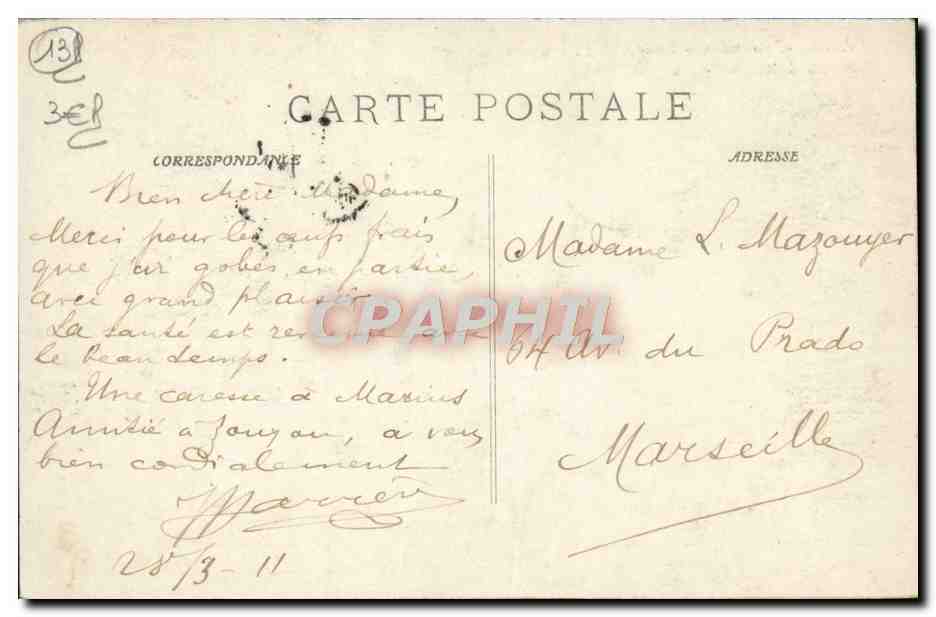 13
3€
CARTE POSTALE
CORRESPONDANCE
ADRESSE
Bien chère Madame,
Merci pour les œufs frais
que j'ai gobés en partie,
avec grand plaisir
La santé est revenue avec
le beau temps.
Une caresse à Marius
Amitié à, a vous
bien cordialement
28/3-11
Madame L. Mazouyer
64 Av. du Prado
Marseille
CPAPHIL